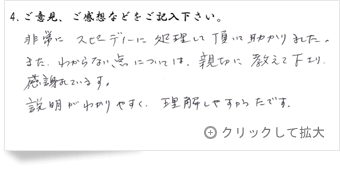 4.ご意見、ご感想などをご記入下さい。
非常にスピーディーに処理して頂いて助かりました。
また、わからない点については、親切に教えて下さり、
感謝しています。
説明がわかりやすく、理解しやすかったです。
クリックして拡大